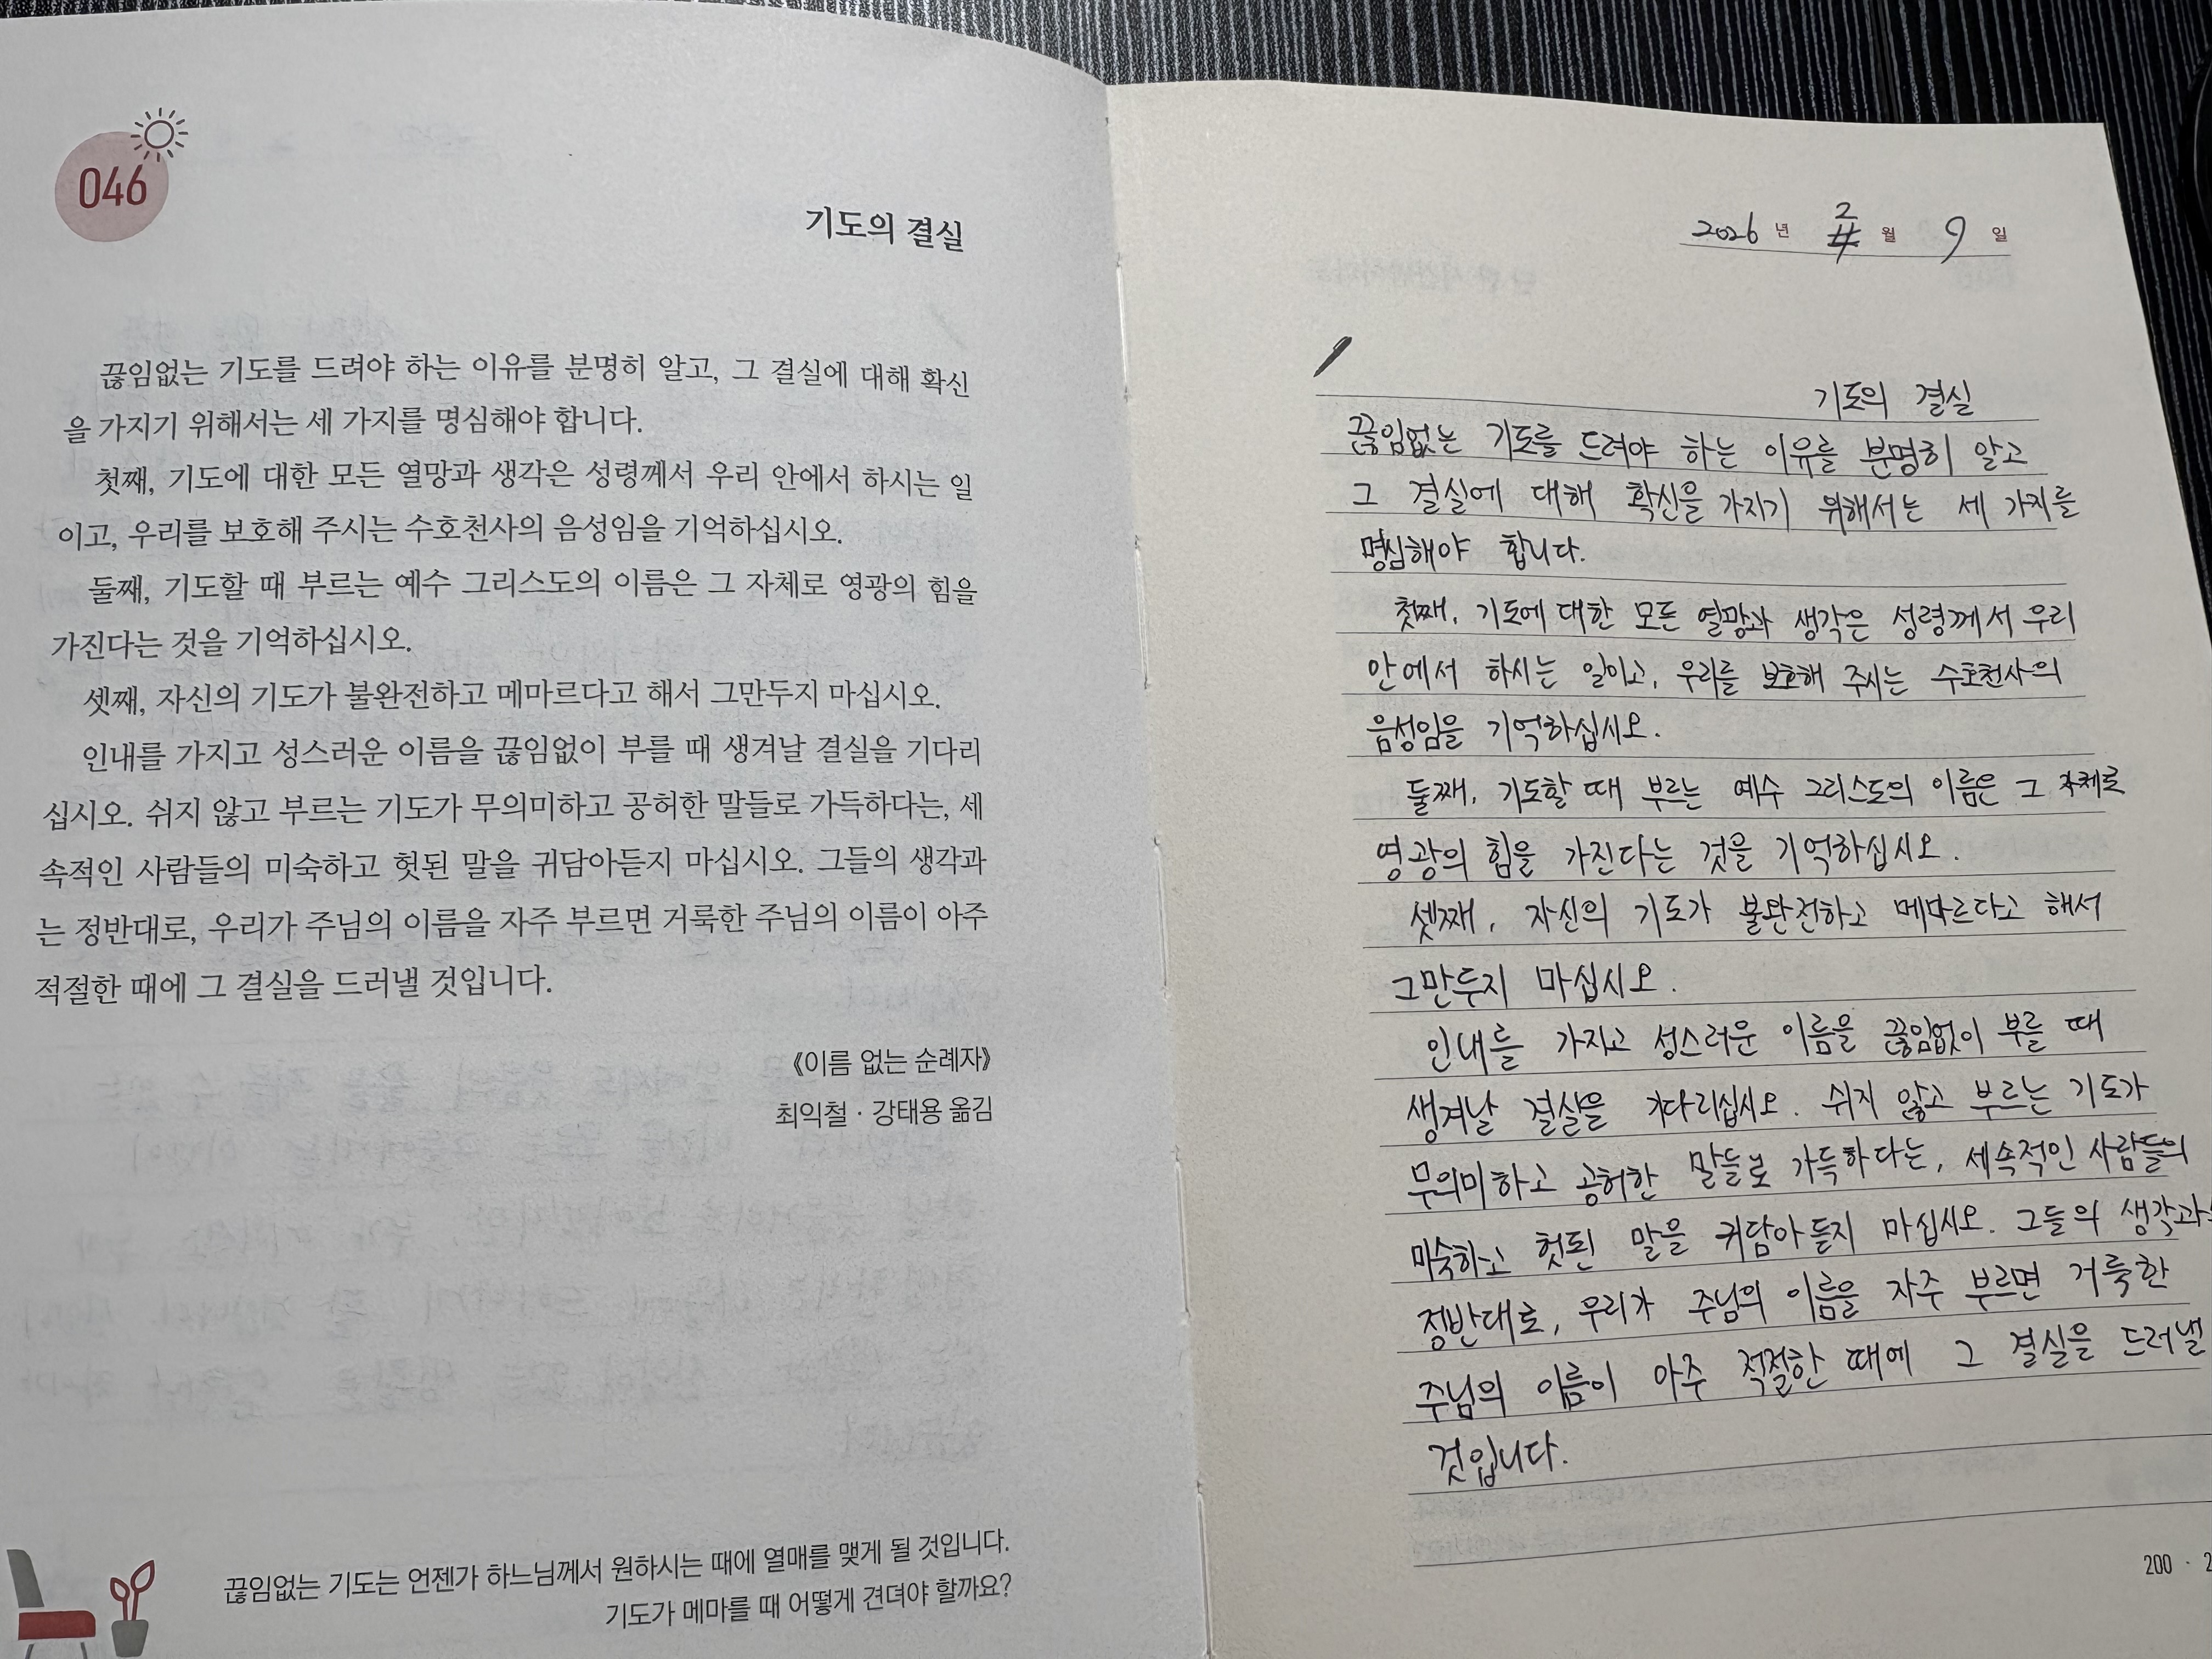 046
기도의 결실
끊임없는 기도를 드려야 하는 이유를 분명히 알고, 그 결실에 대해 확신
을 가지기 위해서는 세 가지를 명심해야 합니다.
첫째, 기도에 대한 모든 열망과 생각은 성령께서 우리 안에서 하시는 일
이고, 우리를 보호해 주시는 수호천사의 음성임을 기억하십시오.
둘째, 기도할 때 부르는 예수 그리스도의 이름은 그 자체로 영광의 힘을
가진다는 것을 기억하십시오.
셋째, 자신의 기도가 불완전하고 메마르다고 해서 그만두지 마십시오.
인내를 가지고 성스러운 이름을 끊임없이 부를 때 생겨날 결실을 기다리
십시오. 쉬지 않고 부르는 기도가 무의미하고 공허한 말들로 가득하다는, 세
속적인 사람들의 미숙하고 헛된 말을 귀담아듣지 마십시오. 그들의 생각과
는 정반대로, 우리가 주님의 이름을 자주 부르면 거룩한 주님의 이름이 아주
적절한 때에 그 결실을 드러낼 것입니다.
《이름 없는 순례자》
최익철 · 강태용 옮김
끊임없는 기도는 언젠가 하느님께서 원하시는 때에 열매를 맺게 될 것입니다.
기도가 메마를 때 어떻게 견뎌야 할까요?
2026 년 2 월 9 일
기도의 결실
끊임없는 기도를 드려야 하는 이유를 분명히 알고
그 결실에 대해 확신을 가지기 위해서는 세 가지를
명심해야 합니다.
첫째, 기도에 대한 모든 열망과 생각은 성령께서 우리
안에서 하시는 일이고, 우리를 보호해 주시는 수호천사의
음성임을 기억하십시오.
둘째, 기도할 때 부르는 예수 그리스도의 이름은 그 자체로
영광의 힘을 가진다는 것을 기억하십시오.
셋째, 자신의 기도가 불완전하고 메마르다고 해서
그만두지 마십시오.
인내를 가지고 성스러운 이름을 끊임없이 부를 때
생겨날 결실을 기다리십시오. 쉬지 않고 부르는 기도가
무의미하고 공허한 말들로 가득하다는, 세속적인 사람들의
미숙하고 헛된 말을 귀담아듣지 마십시오. 그들의 생각과는
정반대로, 우리가 주님의 이름을 자주 부르면 거룩한
주님의 이름이 아주 적절한 때에 그 결실을 드러낼
것입니다.
200 ·